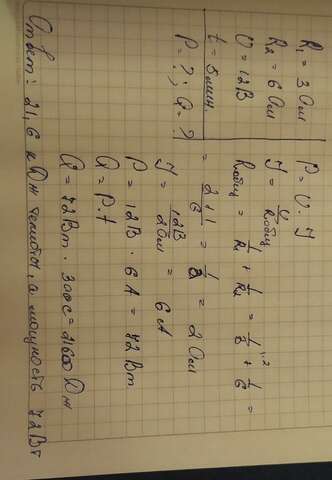 R₁ = 3 Ом
R₂ = 6 Ом
U = 12 В
t = 5 мин.
P = ?; Q = ?
P = U · I
I = U/Rобщ
Rобщ = 1/R₁ + 1/R₂ = 1/3 ·2 + 1/6 =
= 2+1/6 = 1/2 = 2 Ом
I = 12В/2Ом = 6 А
P = 12В · 6 А = 72 Вт
Q = P · t
Q = 72 Вт · 300с = 21600 Дж
Ответ: 21,6 кДж теплоты, а мощность 72 Вт